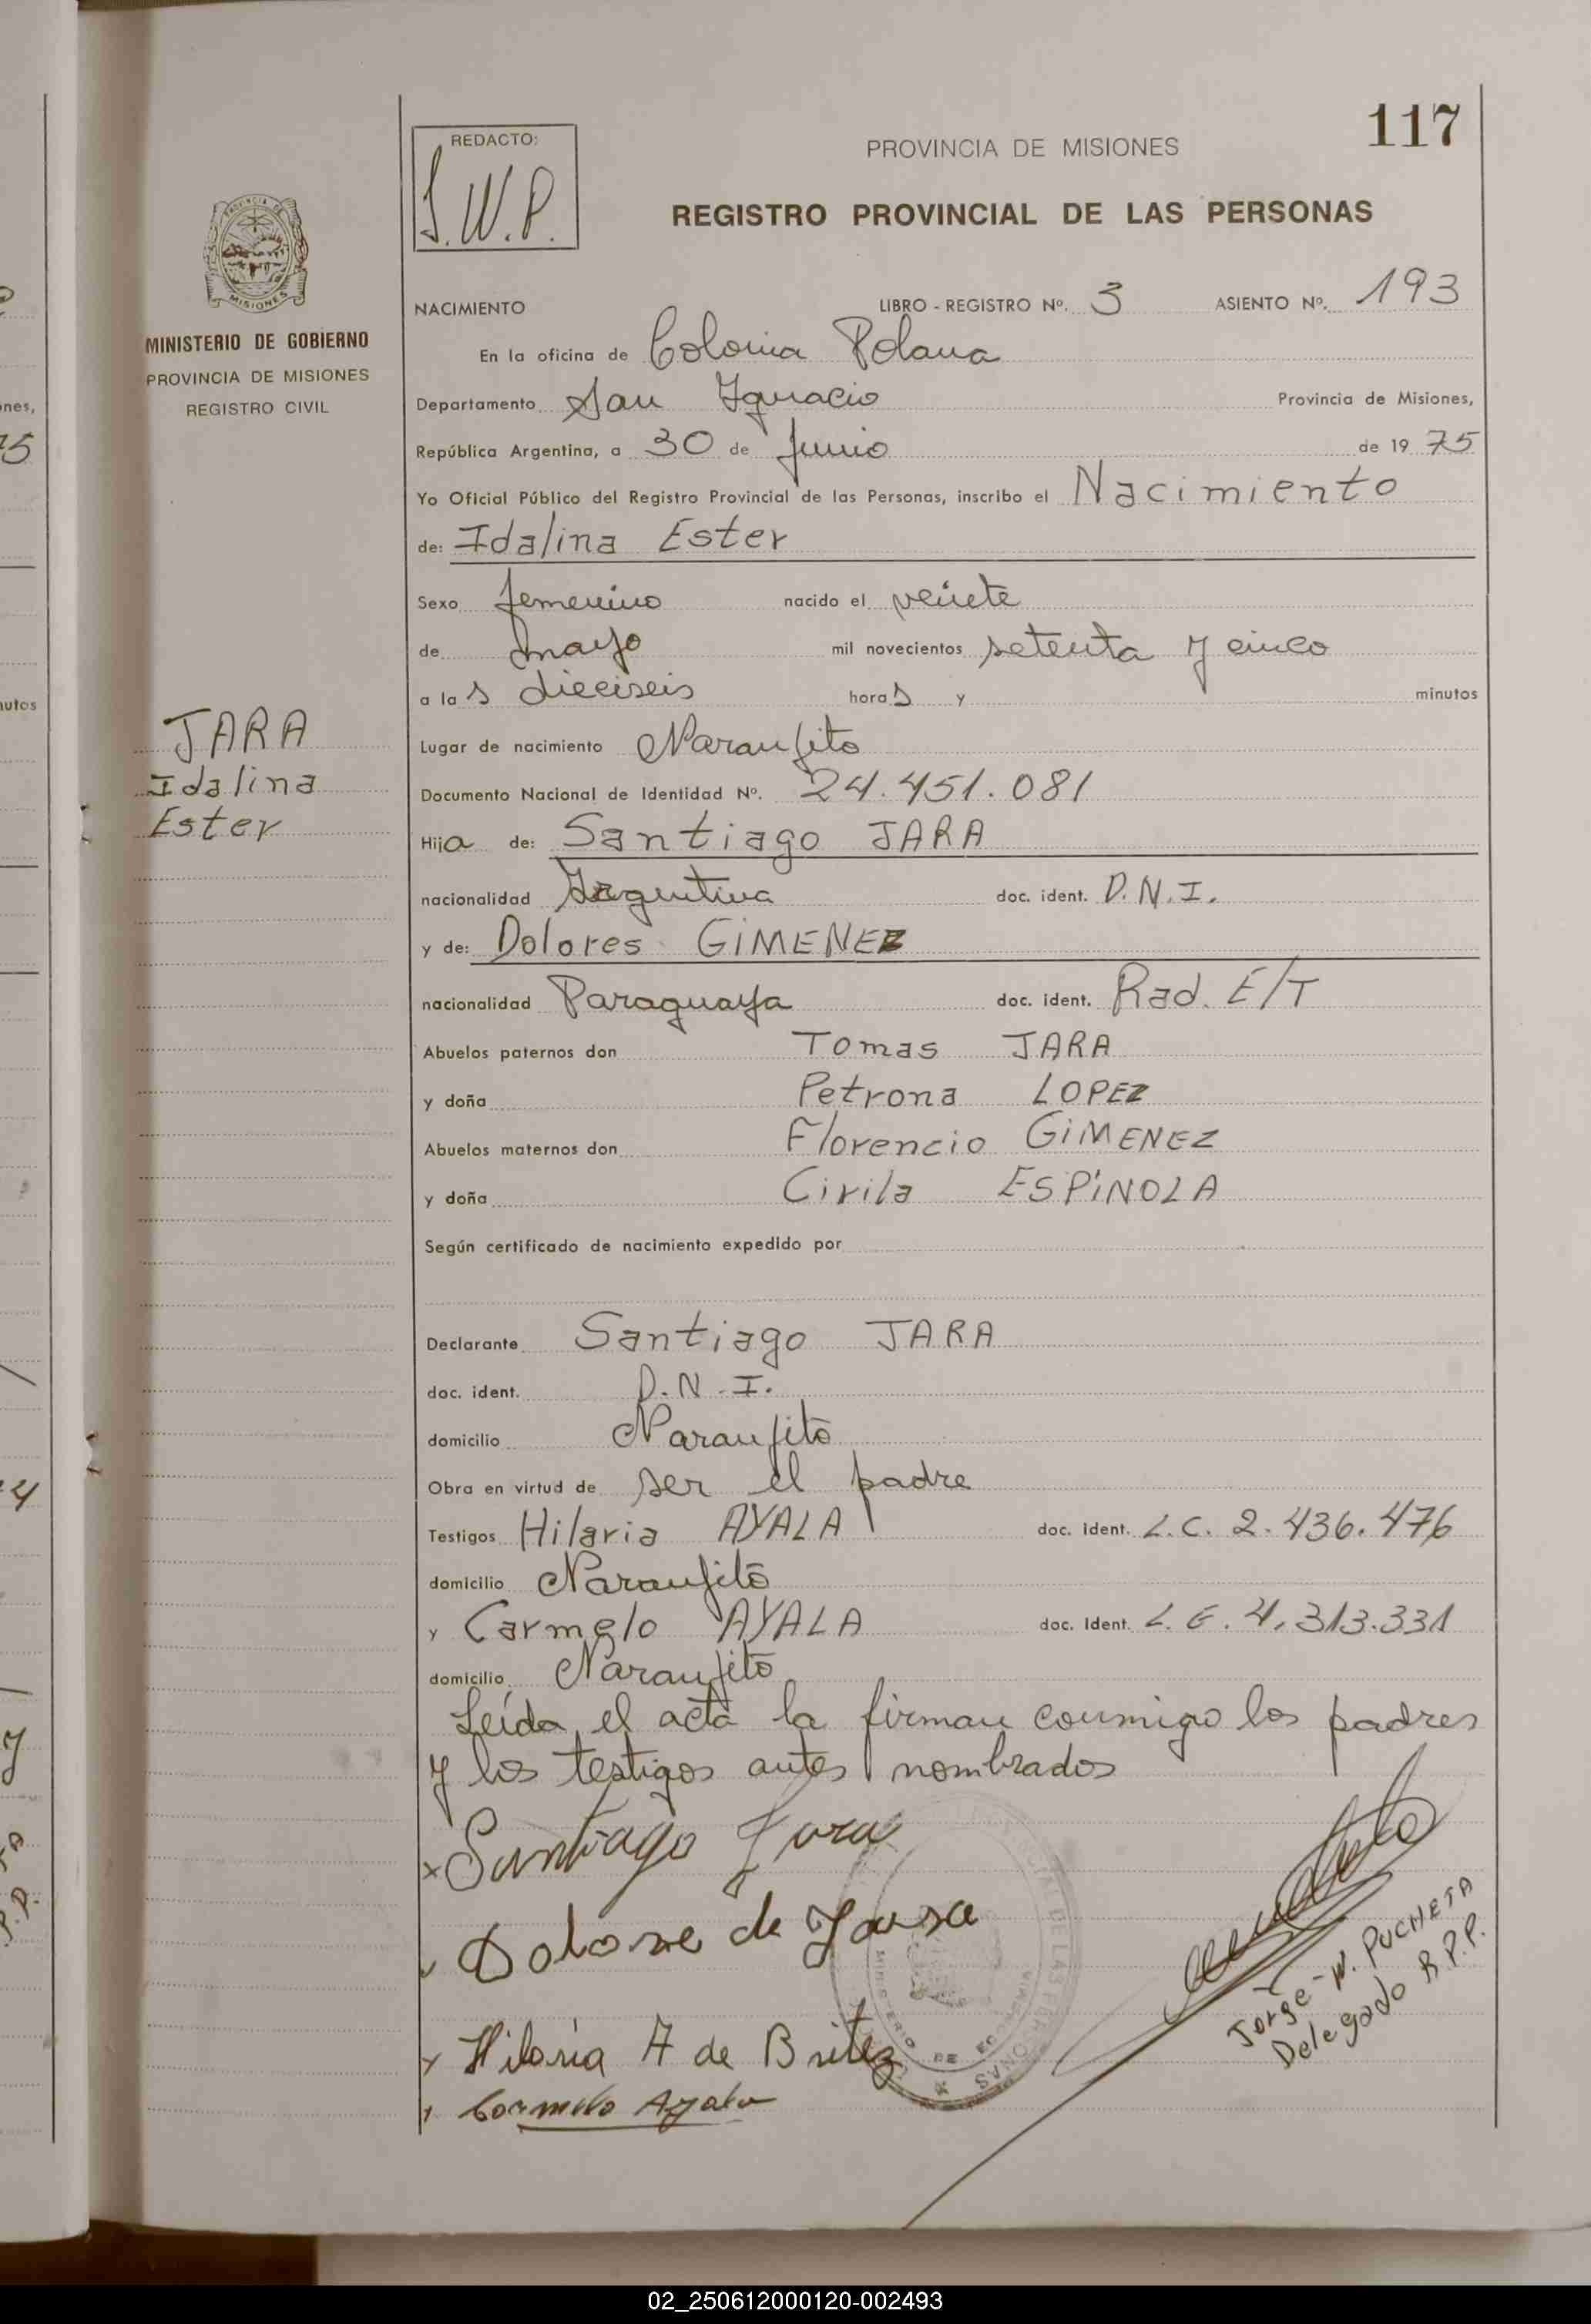 117
REDACTO:
J.W.P.
PROVINCIA DE MISIONES
REGISTRO PROVINCIAL DE LAS PERSONAS
MINISTERIO DE GOBIERNO
PROVINCIA DE MISIONES
REGISTRO CIVIL
NACIMIENTO LIBRO - REGISTRO Nº. 3 ASIENTO Nº. 193
En la oficina de Colonia Polana
Departamento San Ignacio Provincia de Misiones,
República Argentina, a 30 de Junio de 19 75
Yo Oficial Público del Registro Provincial de las Personas, inscribo el Nacimiento
de: Idalina Ester
Sexo femenino nacido el veinte
de mayo mil novecientos setenta y cinco
a las dieciseis horas y minutos
JARA
Idalina
Ester
Lugar de nacimiento Naranjito
Documento Nacional de Identidad Nº. 24.451.081
Hija de: Santiago JARA
nacionalidad Argentina doc. ident. D.N.I.
y de: Dolores GIMENEZ
nacionalidad Paraguaya doc. ident. Rad. E/T
Abuelos paternos don Tomas JARA
y doña Petrona LOPEZ
Abuelos maternos don Florencio GIMENEZ
y doña Cirila ESPINOLA
Según certificado de nacimiento expedido por
Declarante Santiago JARA
doc. ident. D.N.I.
domicilio Naranjito
Obra en virtud de ser el padre
Testigos Hilaria AYALA doc. Ident. L.C. 2.436.476
domicilio Naranjito
y Carmelo AYALA doc. Ident. L.E. 4.313.331
domicilio Naranjito
Leída el acta la firman conmigo los padres
y los testigos antes nombrados
x Santiago Jara
Dolore de Jara
Hilaria A de Britez
Carmelo Ayala
Jorge W. PUCHETA
Delegado R.P.P.
02_250612000120-002493